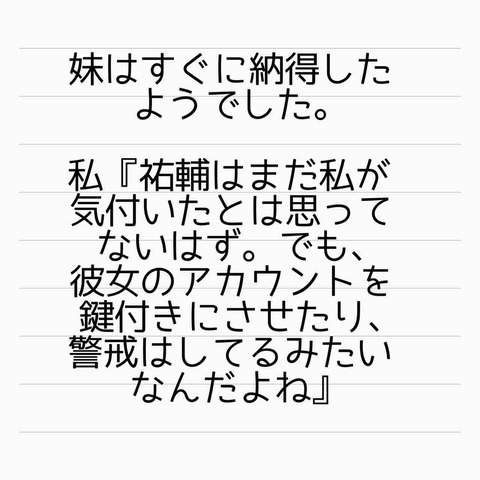 妹はすぐに納得した
ようでした。
私『祐輔はまだ私が
気付いたとは思って
ないはず。でも、
彼女のアカウントを
鍵付きにさせたり、
警戒はしてるみたい
なんだよね』